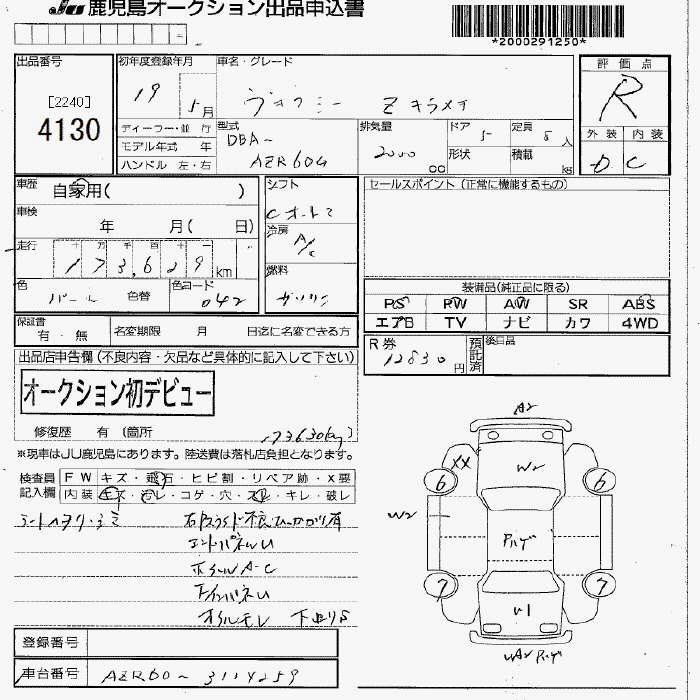 JU 鹿児島オークション出品申込書
*2000291250*
出品番号
[2240]
4130
初年度登録年月
19 5月
車名・グレード
ヴォクシー Z キラメイ
評価点
R
外装 内装
D C
ディーラー・並 行
モデル年式 年
ハンドル 左・右
型式
DBA-
AZR60G
排気量
2000 cc
ドア 5
形状
定員 8人
積載 kg
車歴 自家用( )
車検 年 月( 日)
走行 十 万 千 百 十 一
173,629 km
色 パール 色替
色コード 042
シフト
Cオート
冷房
A/C
燃料
ガソリン
セールスポイント (正常に機能するもの)
装備品(純正品に限る)
PS PW AW SR ABS
エアB TV ナビ カワ 4WD
保証書 有・無
名変期限 月 日迄に名変できる方
R券 12830円
預託済
後日品
出品店申告欄(不良内容・欠品など具体的に記入して下さい)
オークション初デビュー
修復歴 有 (箇所 )
173630kg
※現車はJU鹿児島にあります。陸送費は落札店負担となります。
検査員記入欄
FW キズ・飛石・ヒビ割・リペア跡・X要
内装 キズ・ヨレ・コゲ・穴・スレ・キレ・破レ
エンドパネルU
ホイールA-C
オイルモレ 下回りS
A2
XX
W2
6 6
W2
Pハゲ
7 7
U1
登録番号
車台番号 AZR60-3114259